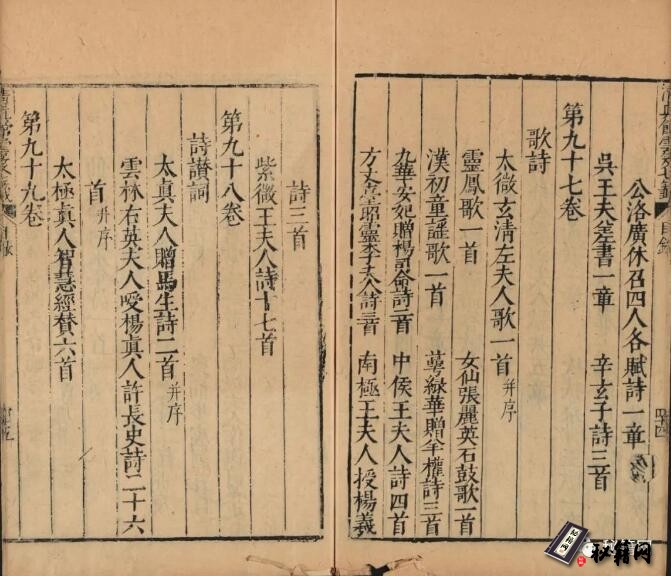 公洛廣休召四人各賦詩一章
吳王夫差書一章 辛玄子詩三首
第九十七卷
歌詩
太微玄清左夫人歌一首 并序
靈鳳歌一首 女仙張麗英石鼓歌一首
漢初童謡歌一首 萼綠華贈羊權詩三首
九華安妃贈楊司命詩二首 中侯王夫人詩四首
方丈臺昭靈李夫人詩三首 南極王夫人授楊羲
目錄
詩三首
紫微王夫人詩十七首
第九十八卷
詩讃詞
太真夫人贈馬生詩二首 并序
雲林右英夫人嗳楊真人許長史詩二十六
首 并序
太極真人智慧經賛六首
第九十九卷
目錄
秘籍网